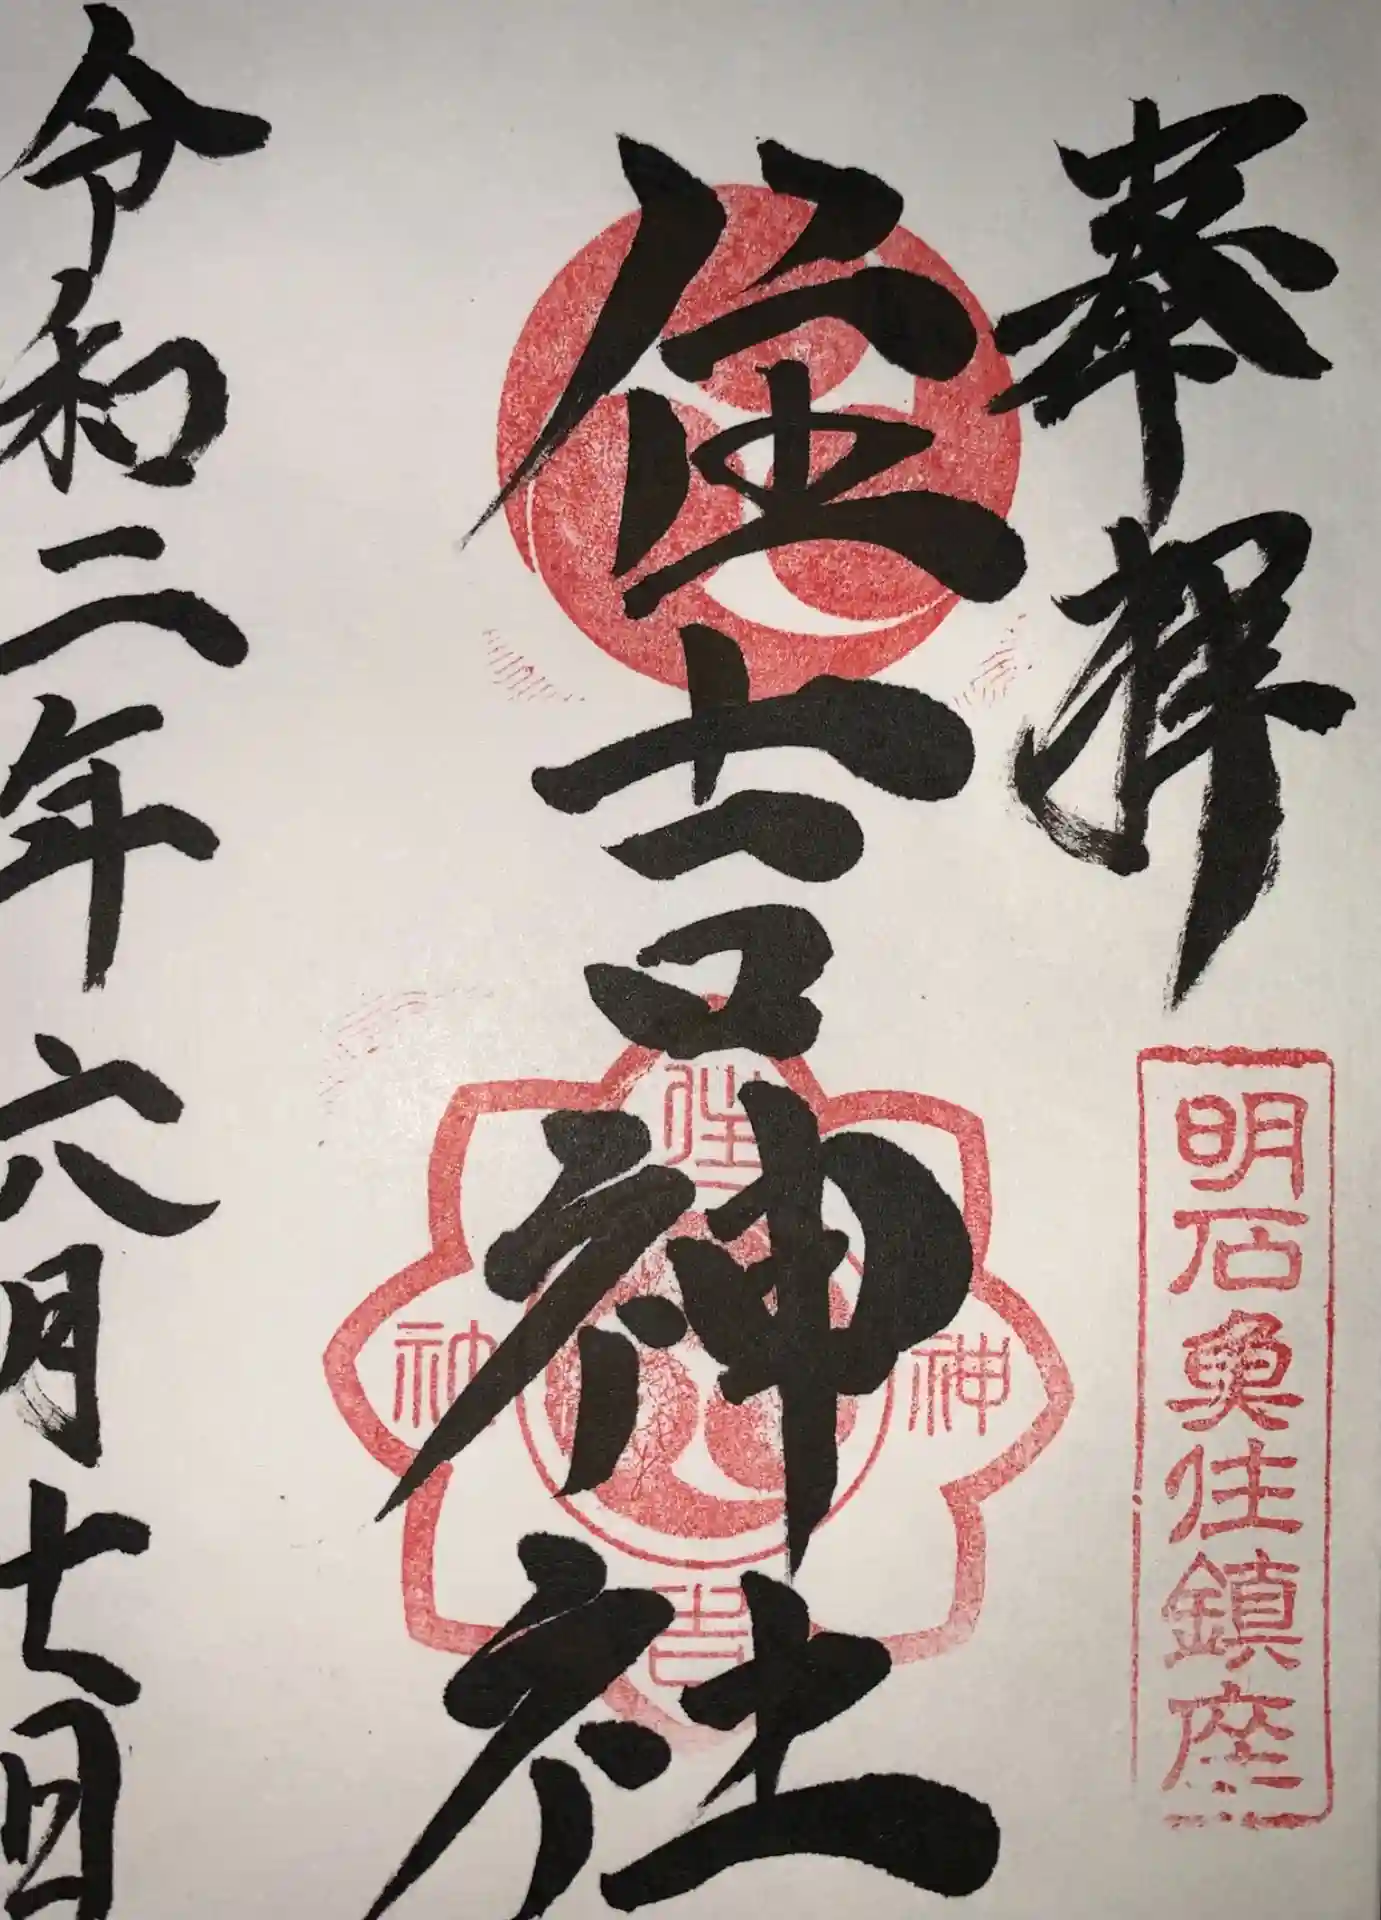 奉拝
明石魚住鎮座
住吉神社
住
神
社
吉
令和二年六月七日